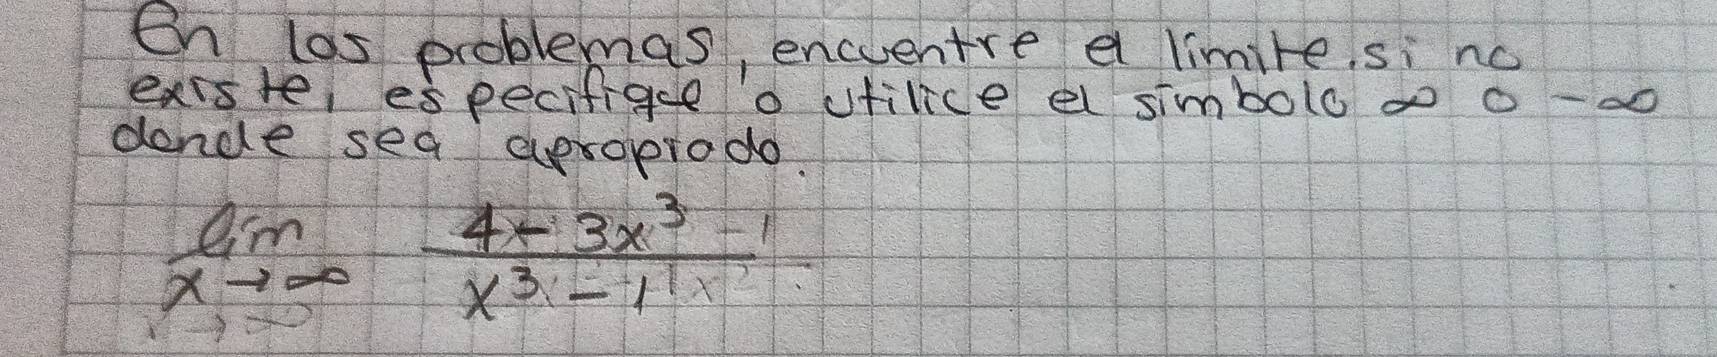 En los problemas, encuentre el límite. si no
existe, especifique o utilice el símbolo ∞ o -∞
donde sea apropiado.
lim 4x - 3x³ - 1
x → ∞ x³ - 1